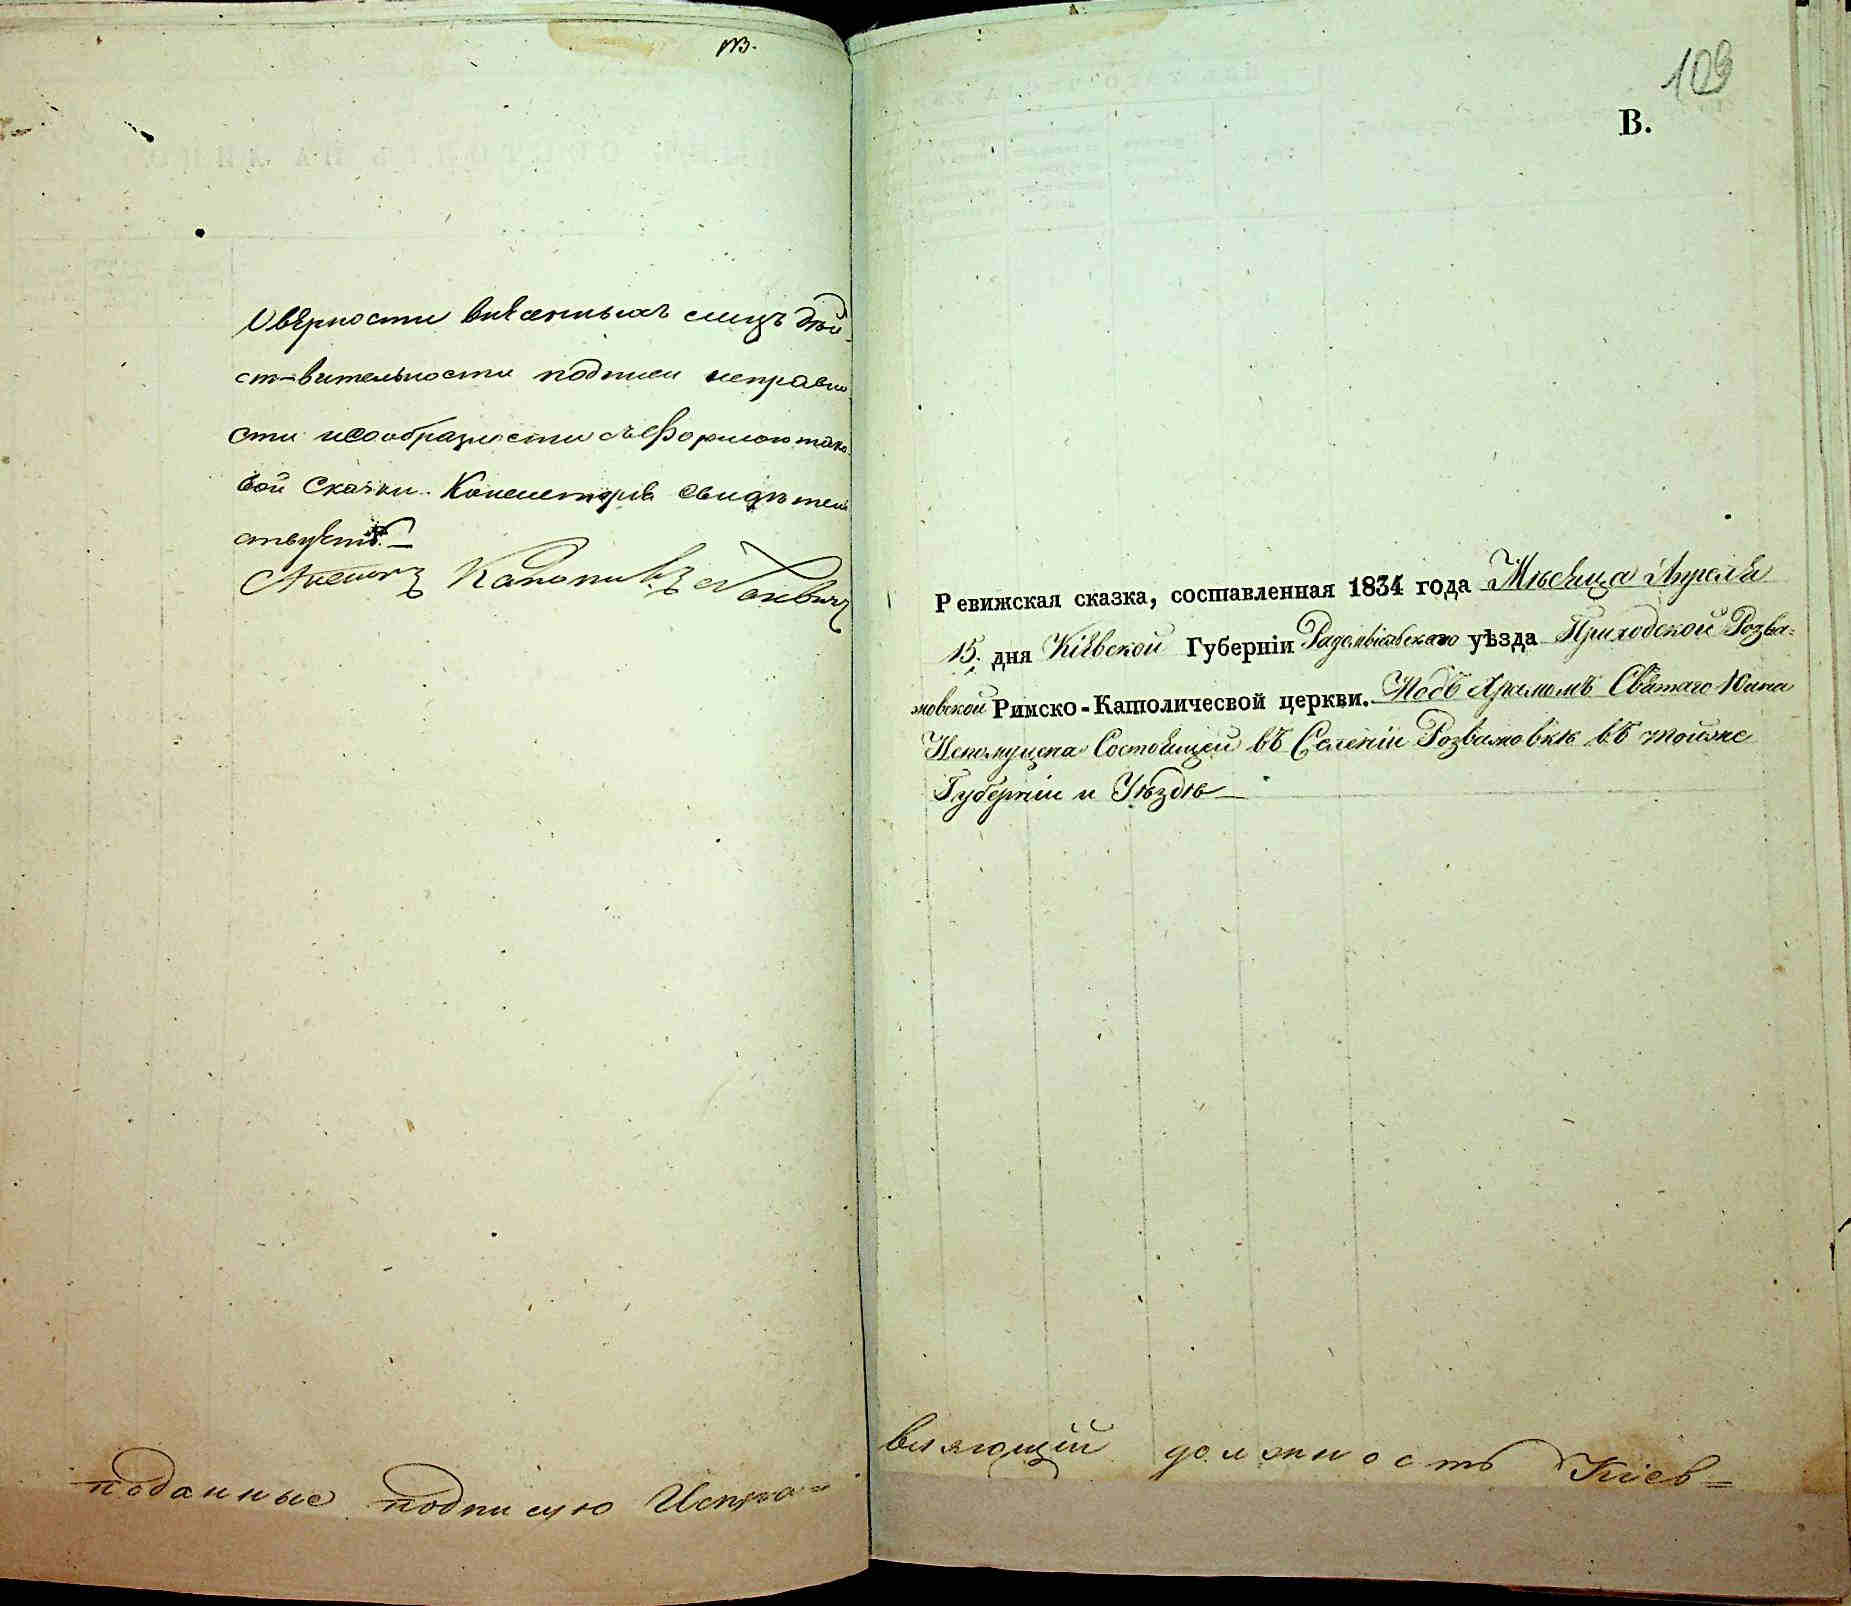 О вѣрности внесенныхъ лицъ дѣй-
ствительности подписи исправно-
сти и сообразности съ Формою тако-
вой Сказки. Консисторія свидѣтель-
ствуетъ.—
поданные подписую Исправ-
109
В.
Ревижская сказка, составленная 1834 года Мѣсяца Апреля
15. дня Кіевской Губерніи Радомысльскаго уѣзда Приходской Розва-
жовской Римско-Католичесвой церкви. Подъ Храмомъ Святаго Яна
Непомуцена Состоящей въ Селеніи Розважовкѣ въ тойже
Губерніи и Уѣздѣ —
вляющій должность Кіев=